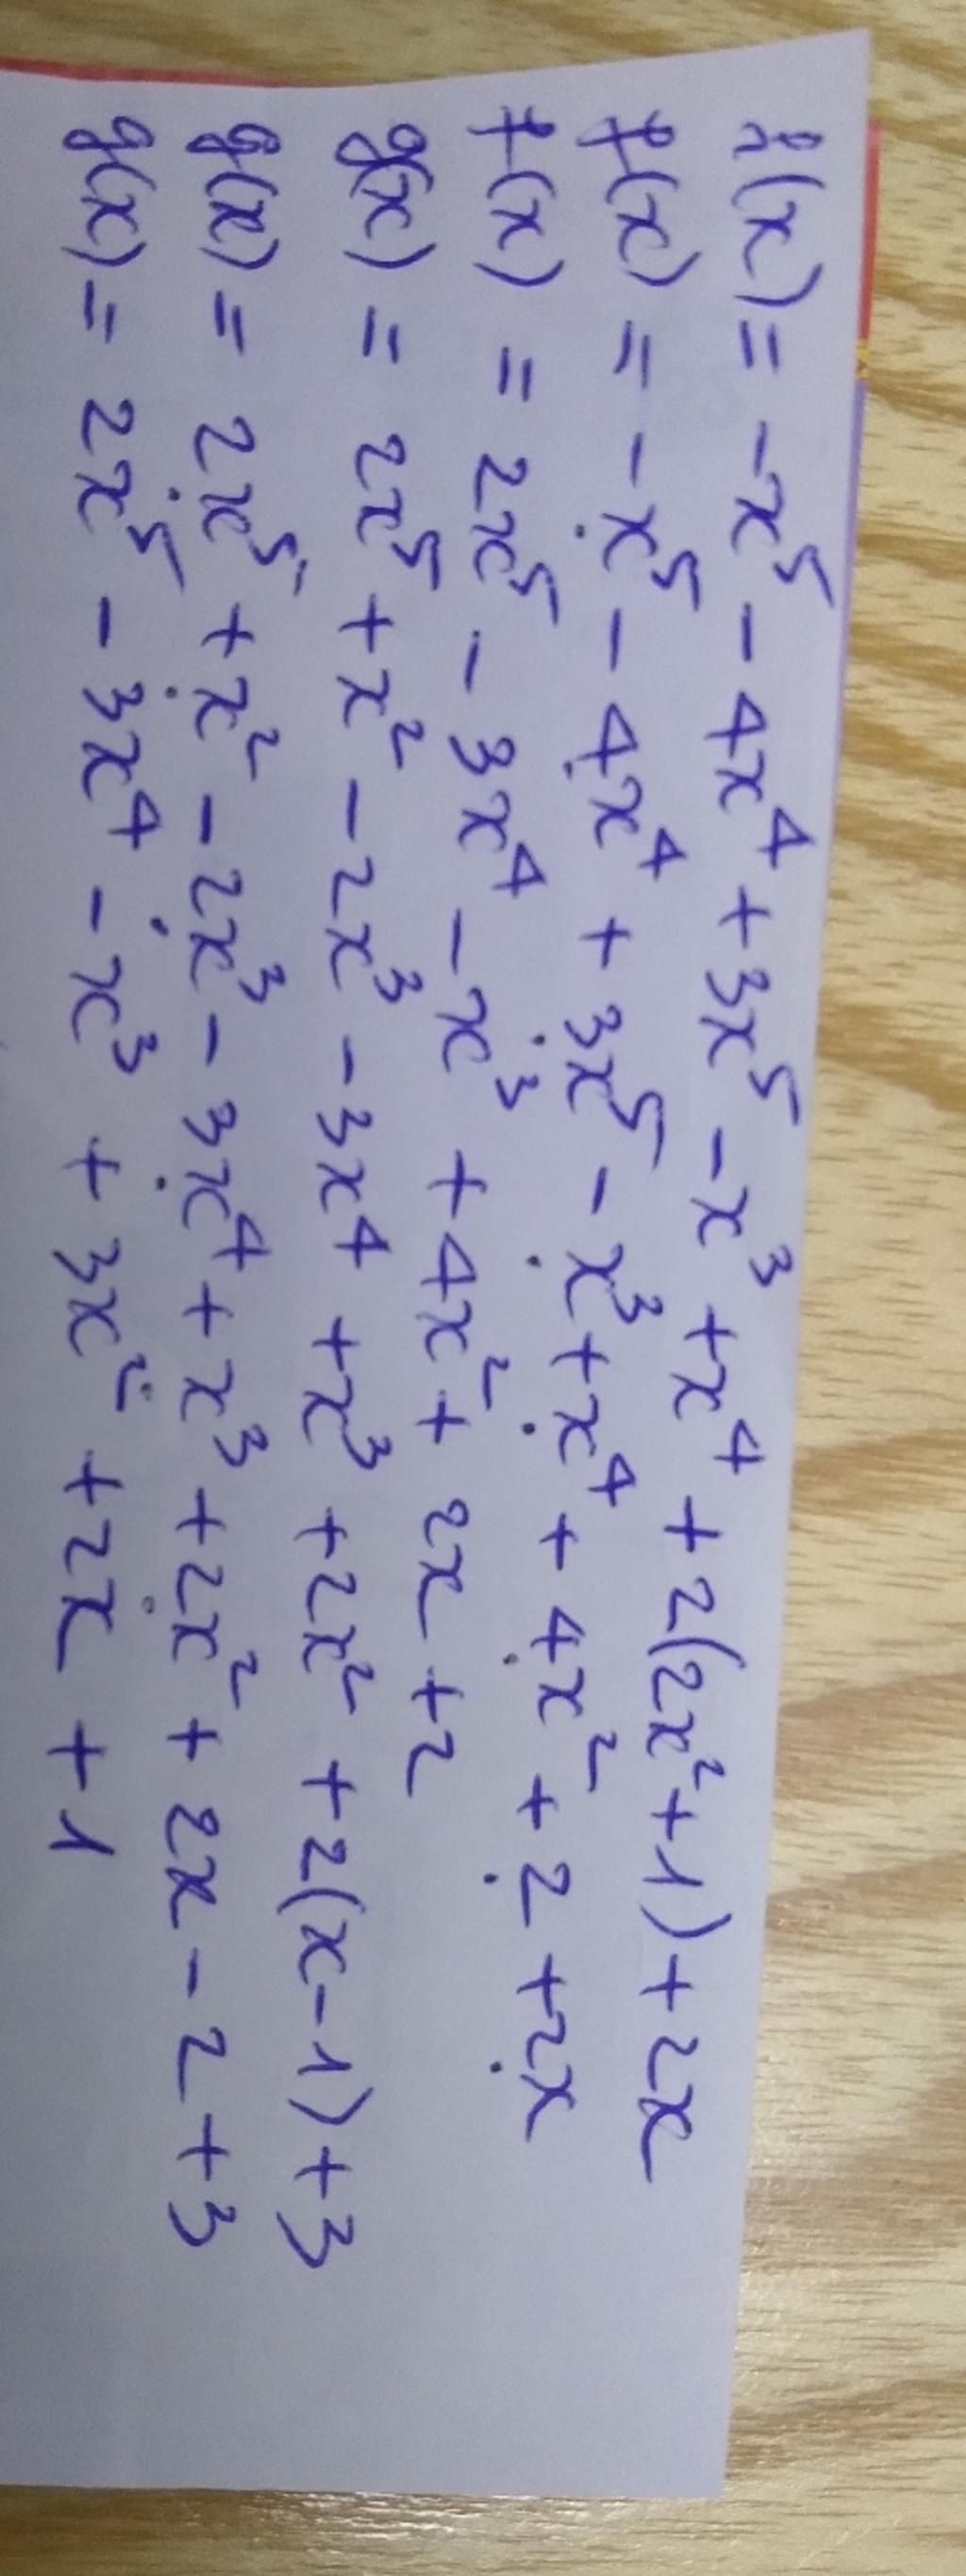 f(x) = -x⁵ - 4x⁴ + 3x⁵ - x³ + x⁴ + 2(2x² + 1) + 2x
f(x) = -x⁵ - 4x⁴ + 3x⁵ - x³ + x⁴ + 4x² + 2 + 2x
f(x) = 2x⁵ - 3x⁴ - x³ + 4x² + 2x + 2
g(x) = 2x⁵ + x² - 2x³ - 3x⁴ + x³ + 2x² + 2(x - 1) + 3
g(x) = 2x⁵ + x² - 2x³ - 3x⁴ + x³ + 2x² + 2x - 2 + 3
g(x) = 2x⁵ - 3x⁴ - x³ + 3x² + 2x + 1